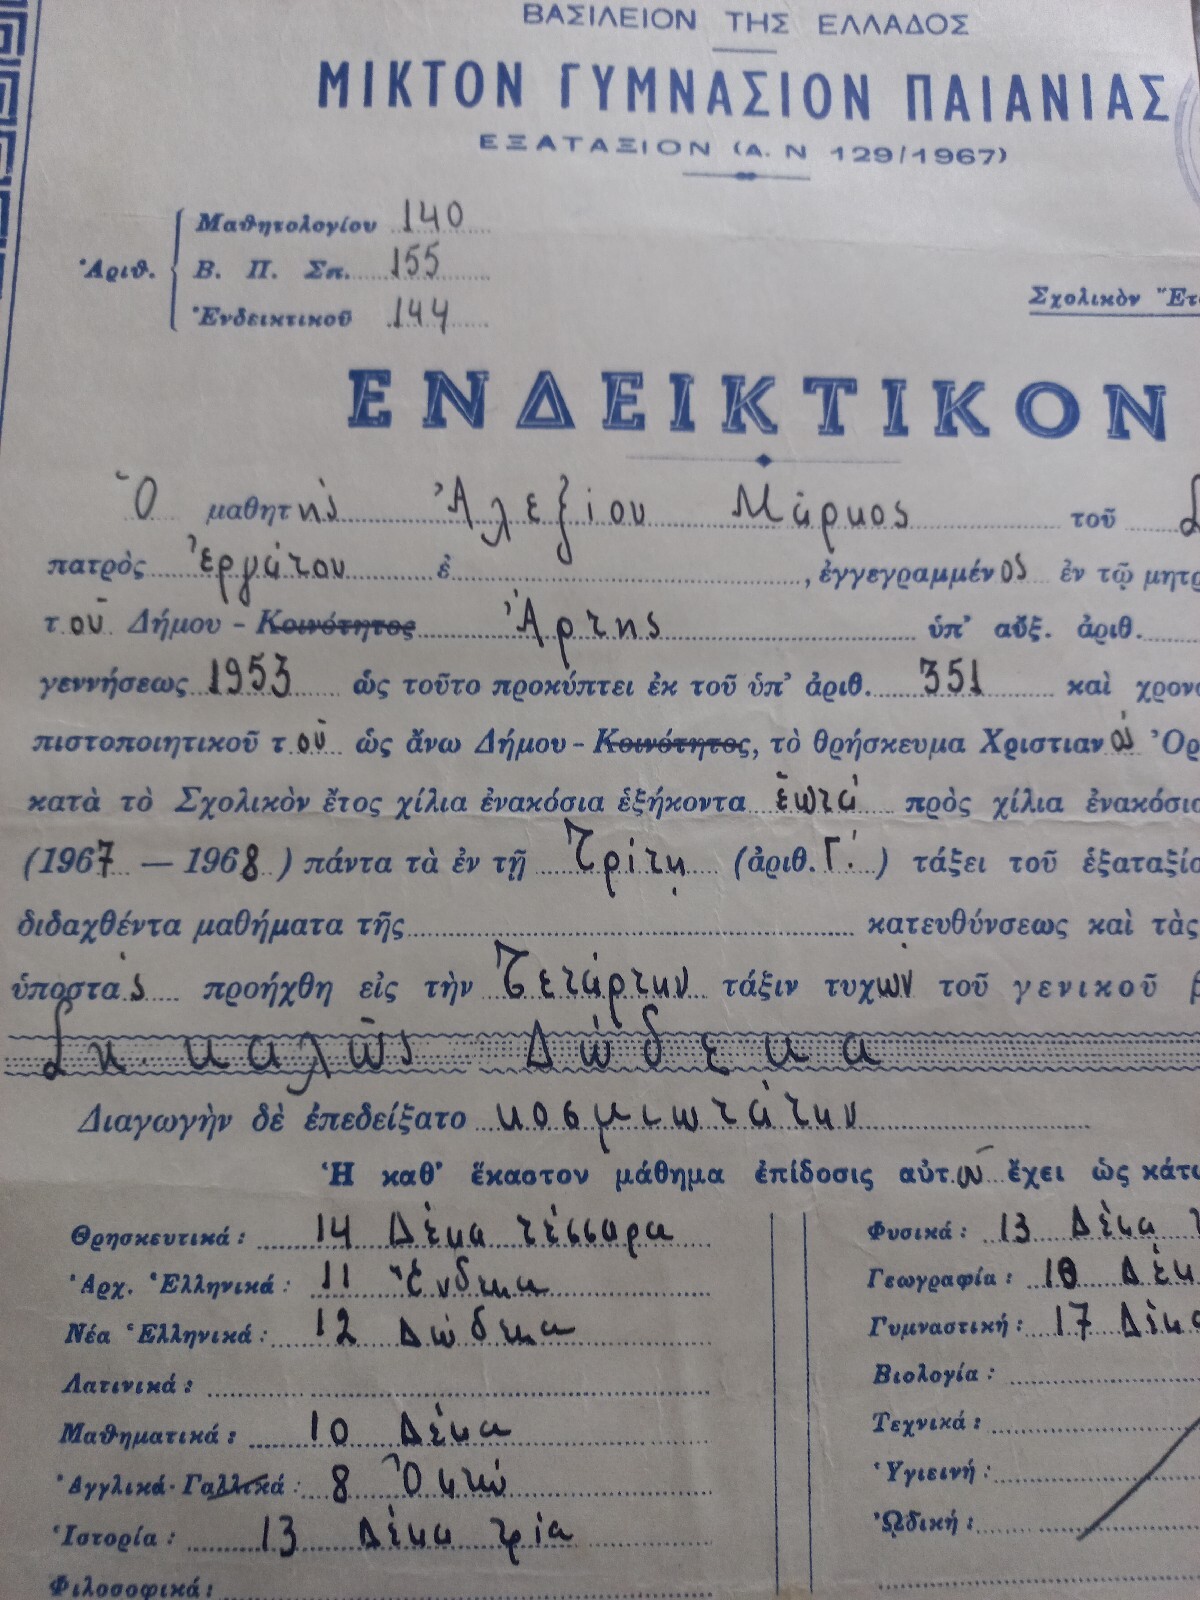 ΒΑΣΙΛΕΙΟΝ ΤΗΣ ΕΛΛΑΔΟΣ
ΜΙΚΤΟΝ ΓΥΜΝΑΣΙΟΝ ΠΑΙΑΝΙΑΣ
ΕΞΑΤΑΞΙΟΝ (Α. Ν 129/1967)
Ἀριθ.
Μαθητολογίου 140
Β. Π. Σπ. 155
Ἐνδεικτικοῦ 144
Σχολικὸν Ἔτ
ΕΝΔΕΙΚΤΙΚΟΝ
Ὁ μαθητὴς Ἀλεξίου Μάρκος τοῦ
πατρὸς ἐργάτου ἐ , ἐγγεγραμμένος ἐν τῷ μητρ
τοῦ Δήμου - Κοινότητος Ἄρτης ὑπ' αὔξ. ἀριθ.
γεννήσεως 1953 ὡς τοῦτο προκύπτει ἐκ τοῦ ὑπ' ἀριθ. 351 καὶ χρονο
πιστοποιητικοῦ τοῦ ὡς ἄνω Δήμου - Κοινότητος, τὸ θρήσκευμα Χριστιανὸς Ὀρ
κατὰ τὸ Σχολικὸν ἔτος χίλια ἐνακόσια ἑξήκοντα ἑπτά πρὸς χίλια ἐνακόσια
(1967 — 1968) πάντα τὰ ἐν τῇ Τρίτῃ (ἀριθ. Γ.') τάξει τοῦ ἑξαταξίο
διδαχθέντα μαθήματα τῆς κατευθύνσεως καὶ τὰς
ὑποστὰς προήχθη εἰς τὴν Τετάρτην τάξιν τυχὼν τοῦ γενικοῦ β
καλῶς Δώδεκα
Διαγωγὴν δὲ ἐπεδείξατο κοσμιωτάτην
Ἡ καθ' ἕκαστον μάθημα ἐπίδοσις αὐτοῦ ἔχει ὡς κάτω
Θρησκευτικά: 14 Δέκα τέσσαρα
Ἀρχ. Ἑλληνικά: 11 Ἕνδεκα
Νέα Ἑλληνικά: 12 Δώδεκα
Λατινικά:
Μαθηματικά: 10 Δέκα
Ἀγγλικά - Γαλλικά: 8 Ὀκτώ
Ἱστορία: 13 Δέκα τρία
Φιλοσοφικά:
Φυσικά: 13 Δέκα τ
Γεωγραφία: 10 Δέκ
Γυμναστική: 17 Δέκα
Βιολογία:
Τεχνικά:
Ὑγιεινή:
Ὠδική: